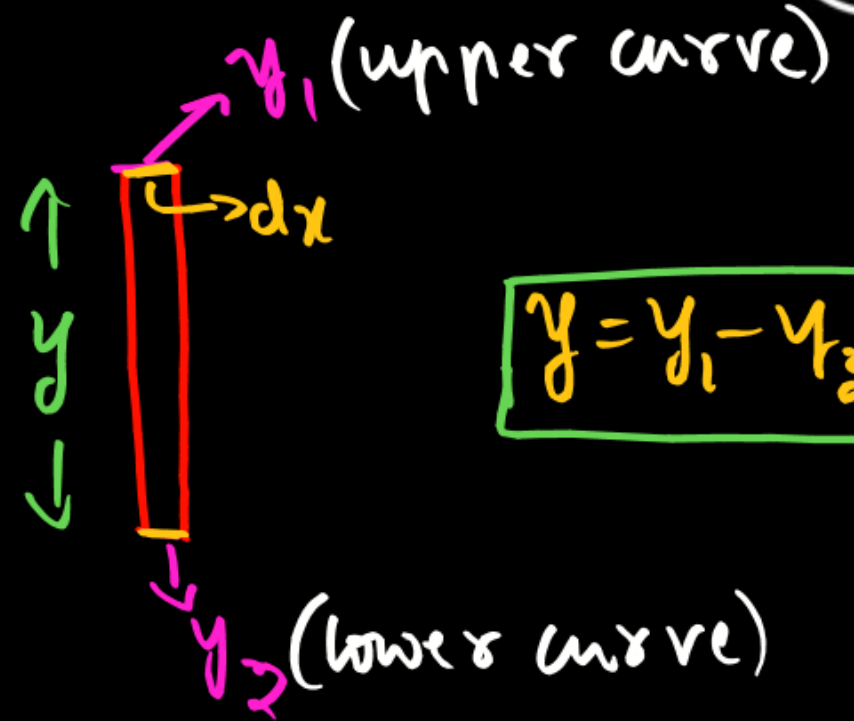 y₁ (upper curve)
dx
y
y = y₁ - y₂
y₂ (lower curve)